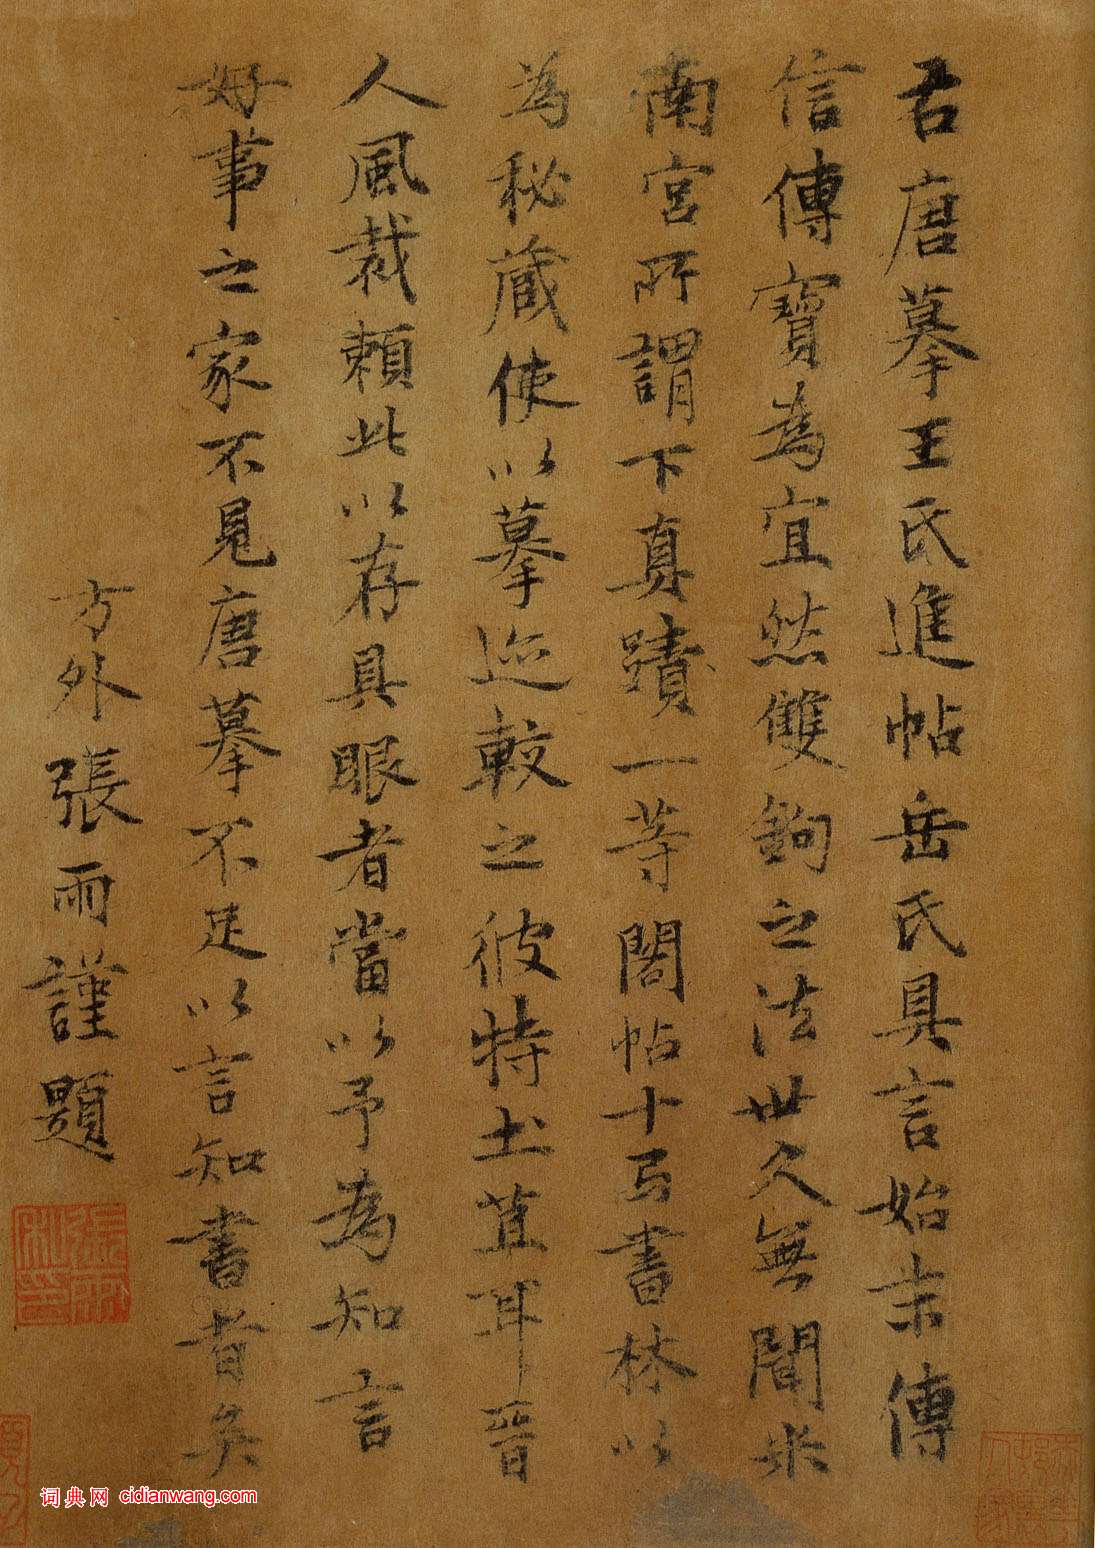 右唐摹王氏進帖岳氏具言始末傳
信傳寶為宜然雙鉤之法世久無聞米
南宮所謂下真蹟一等閣帖十卷書林以
為秘藏使以摹迹較之彼特土苴耳晉
人風裁賴此以存具眼者當以予為知言
好事之家不見唐摹不足以言知書者矣
方外張雨謹題
词典网 cidianwang.com